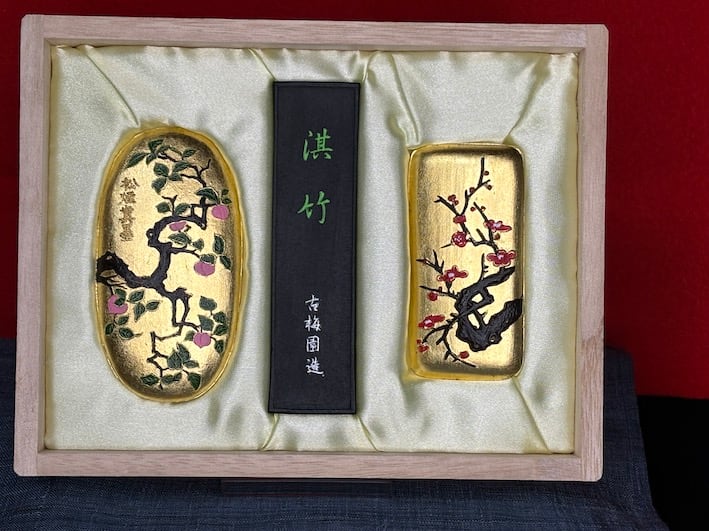 松煙
淇竹
古梅園造